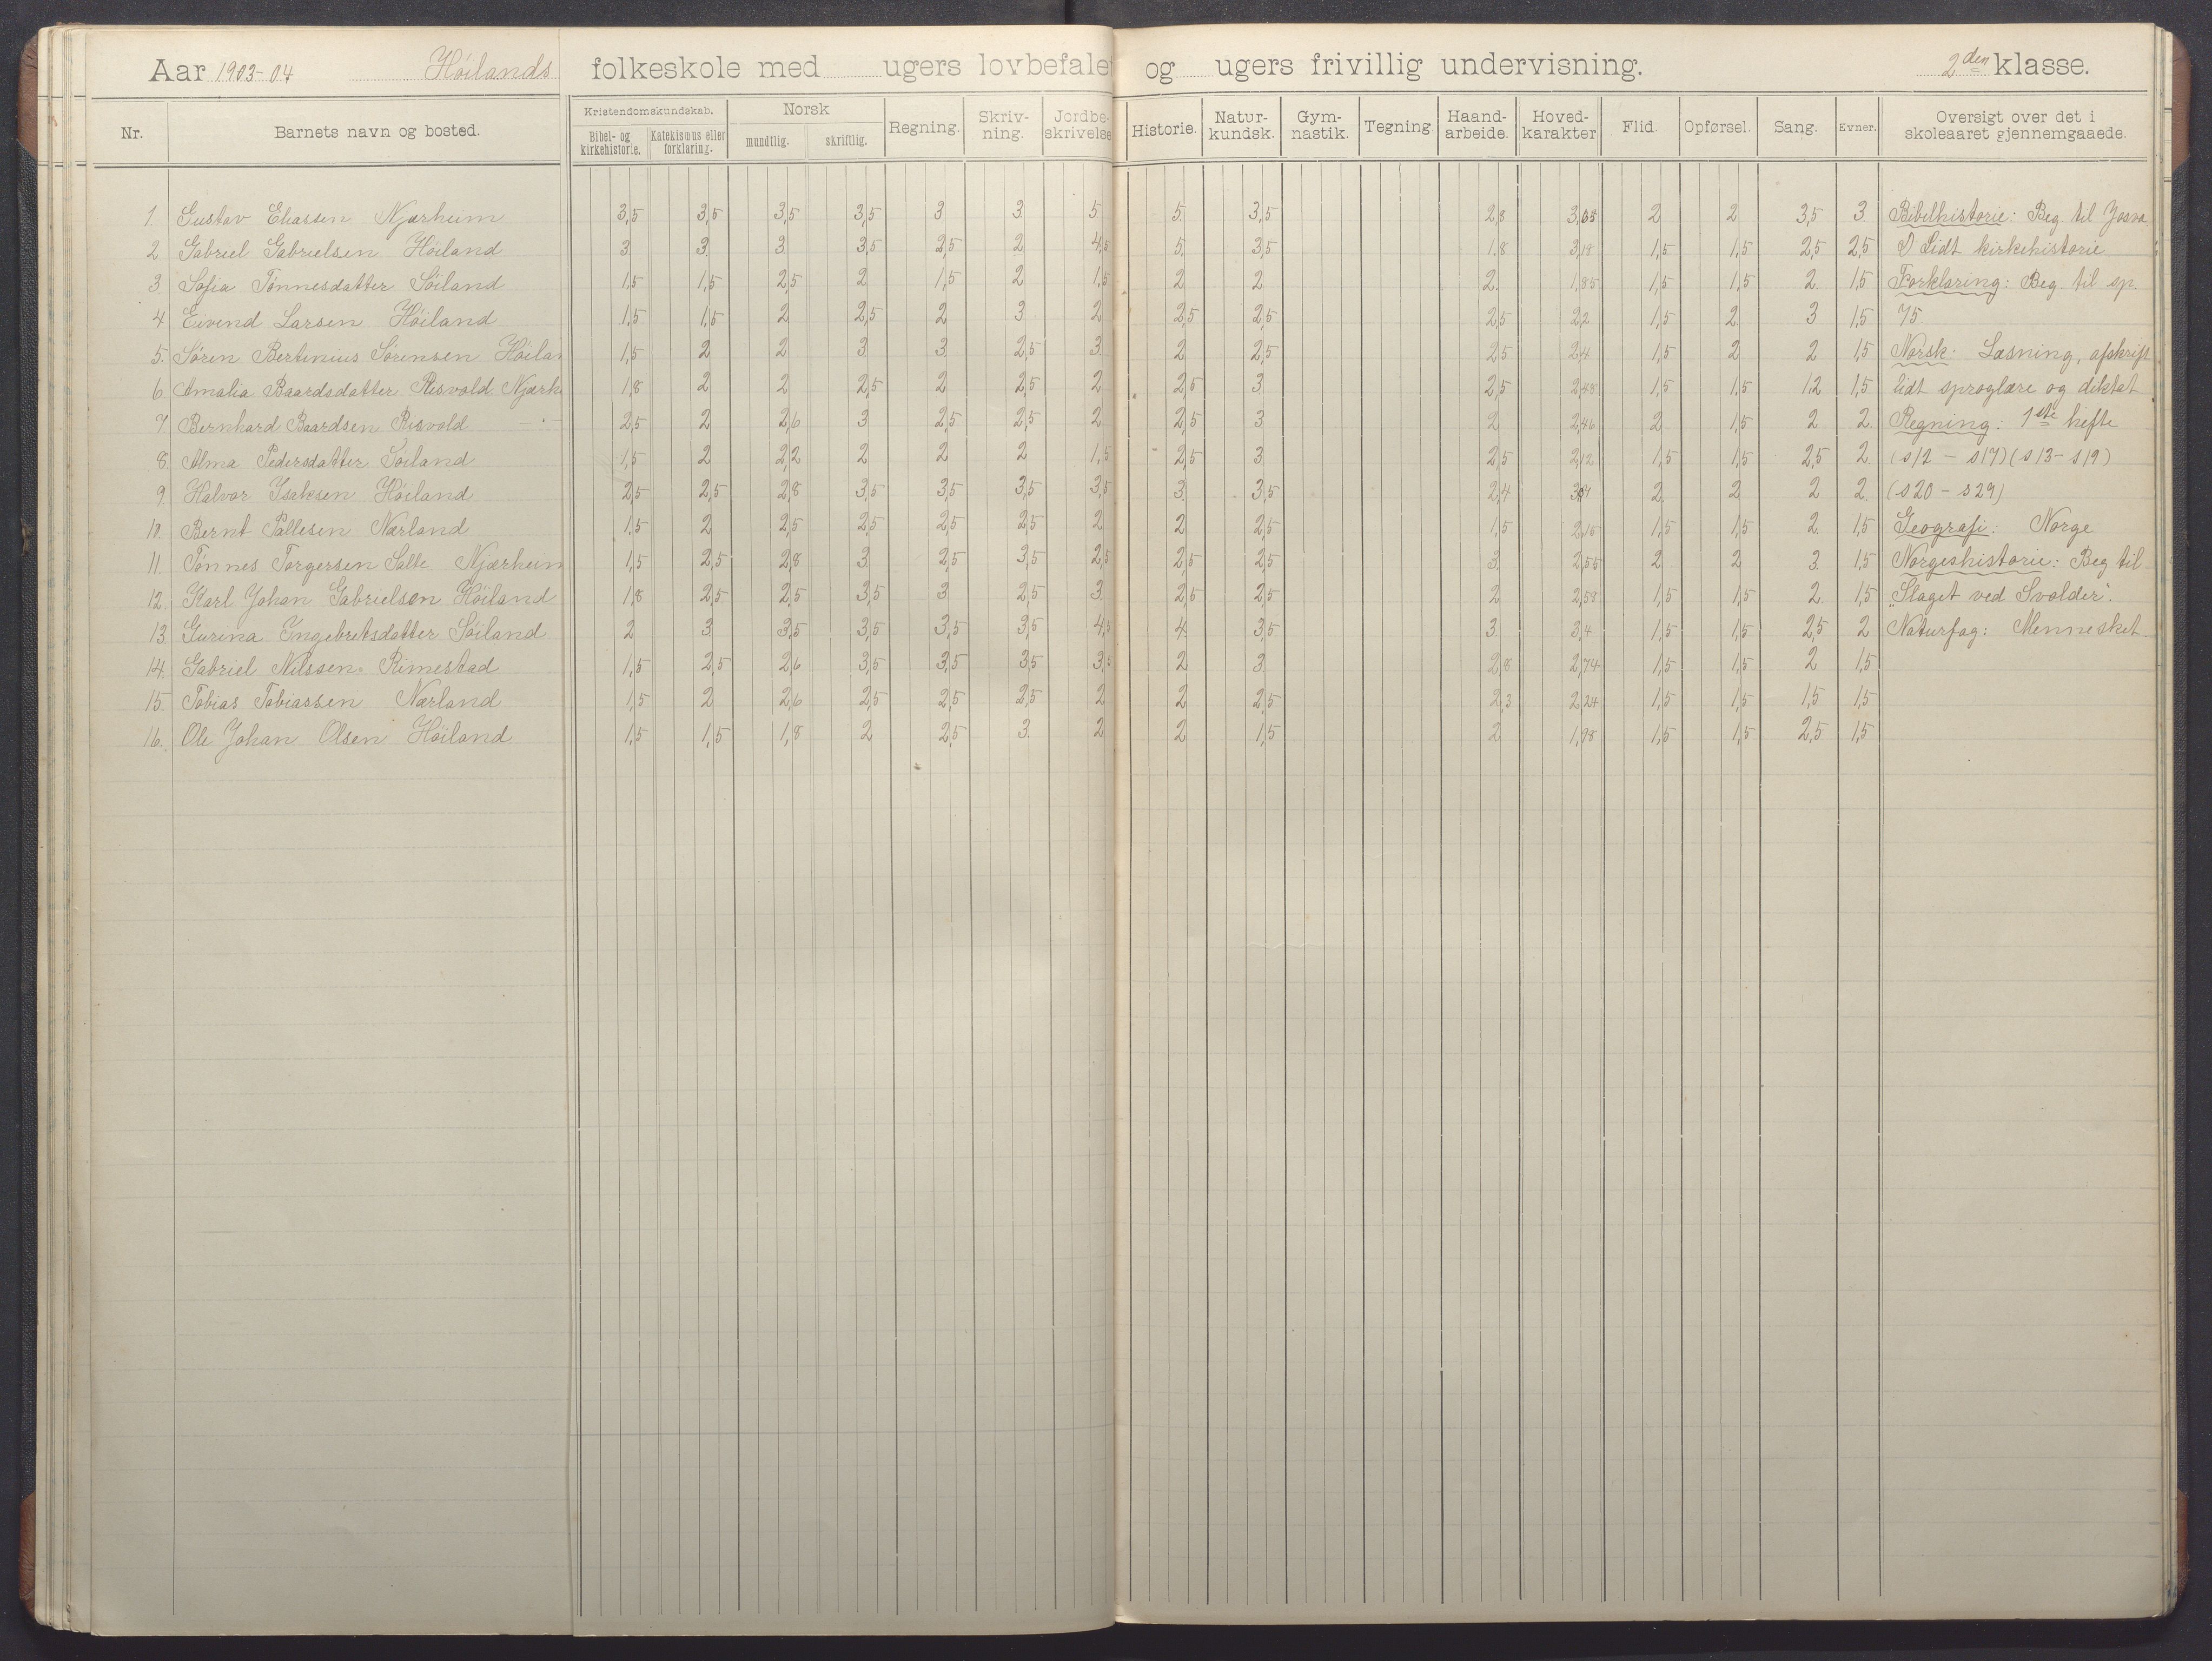 Aar 1903-04 Höilands folkeskole med ugers lovbefalet og ugers frivillig undervisning. 2den klasse.
Nr. Barnets navn og bosted. Kristendomskundskab. Bibel- og kirkehistorie. Katekismus eller forklaring. Norsk mundtlig. skriftlig. Regning. Skriv-ning. Jordbe-skrivelse Historie. Natur-kundsk. Gym-nastik. Tegning Haand-arbeide. Hoved-karakter Flid. Opførsel. Sang. Evner. Oversigt over det i skoleaaret gjennemgaaede.
1. Gustav Eliassen Njærheim 3,5 3,5 3,5 3,5 3 3 5 5 3,5 2,8 3,63 2 2 3,5 3 Bibelhistorie: Beg. til Josva
2 Gabriel Gabrielsen Höiland 3 3 3 3,5 2,5 2 4,5 5 3,5 1,8 3,18 1,5 1,5 2,5 2,5 Lidt kirkehistorie
3. Sofia Tönnesdatter Söiland 1,5 1,5 2,5 2 1,5 2 1,5 2 2 2 1,85 1,5 1,5 2 1,5 Forklaring: Beg. til sp.
4 Eivind Larsen Höiland 1,5 1,5 2 2,5 2 3 2 2,5 2,5 2,5 2,2 1,5 2 3 1,5 75
5. Sören Bertinius Sörensen Höilan 1,5 2 2 3 3 2,5 3 2 2,5 2,5 2,4 1,5 2 2 1,5 Norsk: Læsning, afskrift
6. Amalia Baardsdatter Risvold Njærh 1,8 2 2 2,5 2 2,5 2 2,5 3 2,5 2,48 1,5 1,5 1,2 1,5 lidt sproglære og diktat
7. Bernhard Baardsen Risvold — " — 2,5 2 2,6 3 2,5 2,5 2 2,5 3 2 2,46 2 1,5 2 2 Regning: 1ste hefte
8. Alma Pedersdatter Söiland 1,5 2 2,2 2 2 2 1,5 2,5 3 2,5 2,12 1,5 1,5 2,5 2 (s12 - s17) (s13 - s19)
9. Halvor Isaksen Höiland 2,5 2,5 2,8 3,5 3,5 3,5 3,5 3 3,5 2,4 2 2 2 2 (s20 - s29)
10. Bernt Pallesen Nærland 1,5 2 2,5 2,5 2,5 2,5 2 2 2,5 1,5 2,15 1,5 1,5 2 1,5 Geografi: Norge
11. Tönnes Torgersen Salte Njærheim 1,5 2,5 2,8 3 2,5 3,5 2,5 2,5 2,5 3 2,55 2 2 3 1,5 Norgeshistorie: Beg til
12. Karl Johan Gabrielsen Höiland 1,8 2,5 2,5 3,5 3 2,5 3 2,5 2,5 2 2,58 1,5 1,5 2 1,5 „Slaget ved Svolder".
13. Gurina Ingebretsdatter Söiland 2 3 3,5 3,5 3,5 3,5 4,5 4 3,5 3 3,4 1,5 1,5 2,5 2 Naturfag: Mennesket
14. Gabriel Nilssen Rimestad 1,5 2,5 2,6 3,5 3,5 3,5 3,5 2 3 2,8 2,74 1,5 1,5 2 1,5
15. Tobias Tobiassen Nærland 1,5 2 2,6 2,5 2,5 2,5 2 2 2,5 2,3 2,24 1,5 1,5 1,5 1,5
16. Ole Johan Olsen Höiland 1,5 1,5 1,8 2 2,5 3 2 2 1,5 2 1,98 1,5 1,5 2,5 1,5